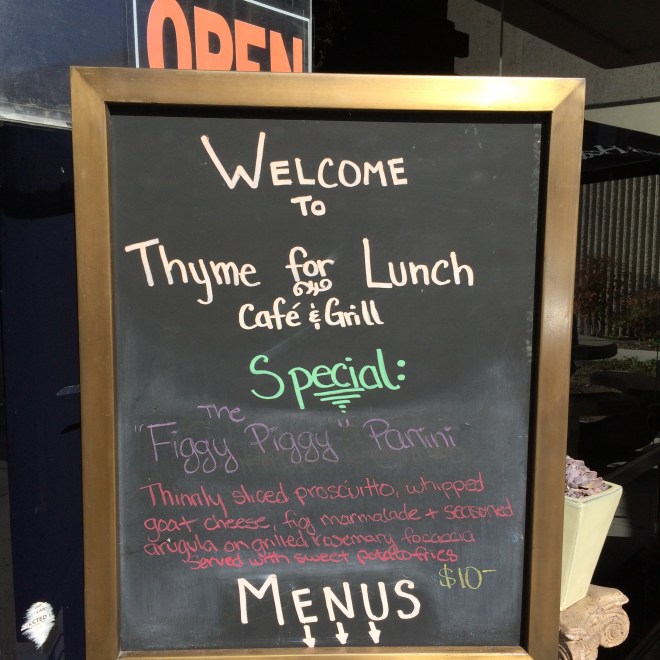 OPEN
WELCOME
TO
Thyme for Lunch
Café & Grill
Special:
The
"Figgy Piggy" Panini
Thinnly sliced prosciutto, whipped
goat cheese, fig marmalade + seasoned
arugula on grilled rosemary focaccia
served with sweet potato fries
$10-
MENUS